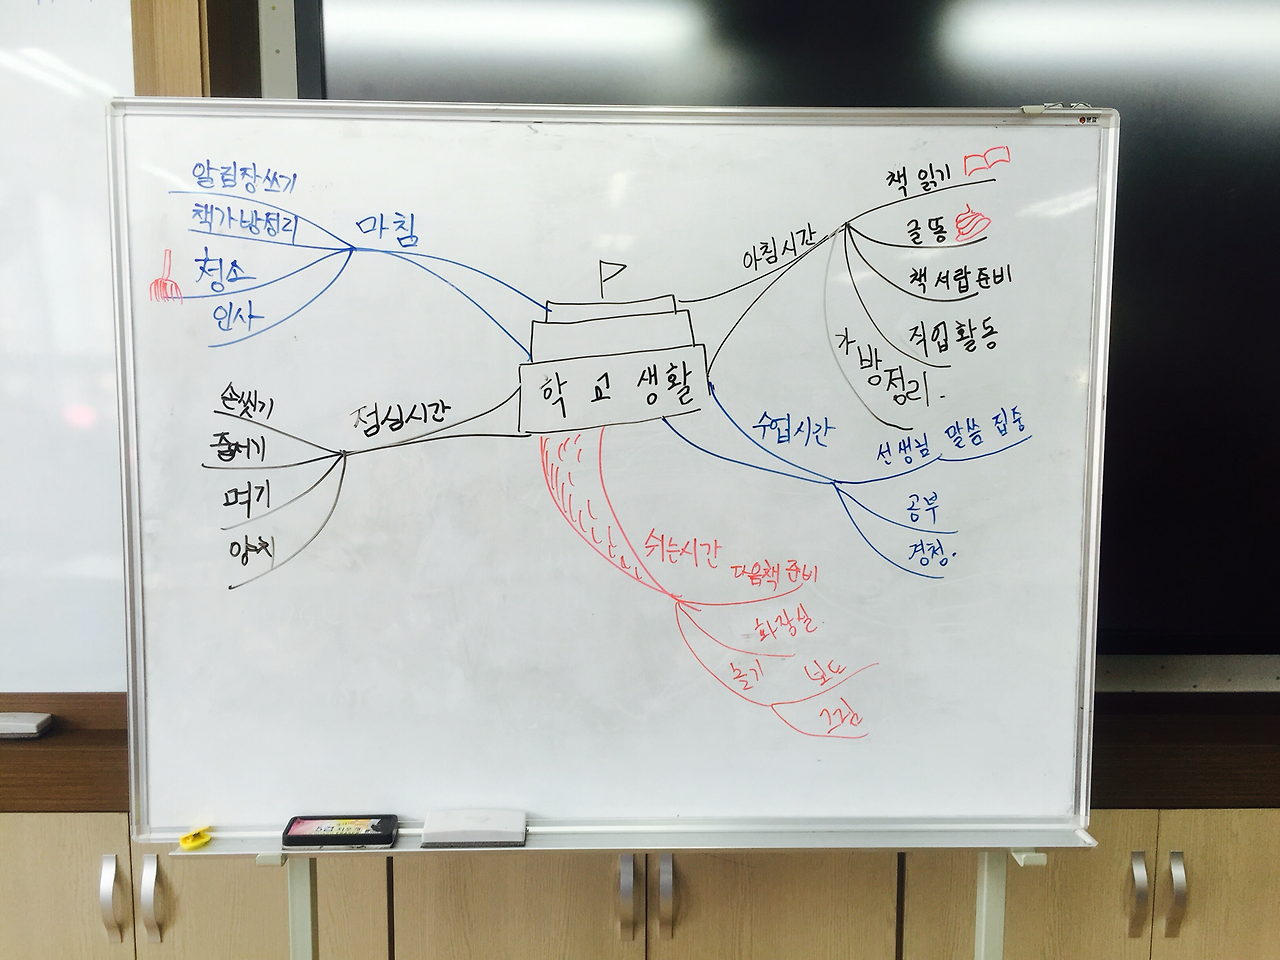 학교 생활
아침시간
책 읽기
글똥
책 서랍 준비
직업 활동
가방정리.
수업시간
선생님 말씀 집중
공부
경청.
쉬는시간
다음책 준비
화장실.
놀기
보드
그림
점심시간
손씻기
줄서기
먹기
양치
마침
알림장 쓰기
책가방정리
청소
인사